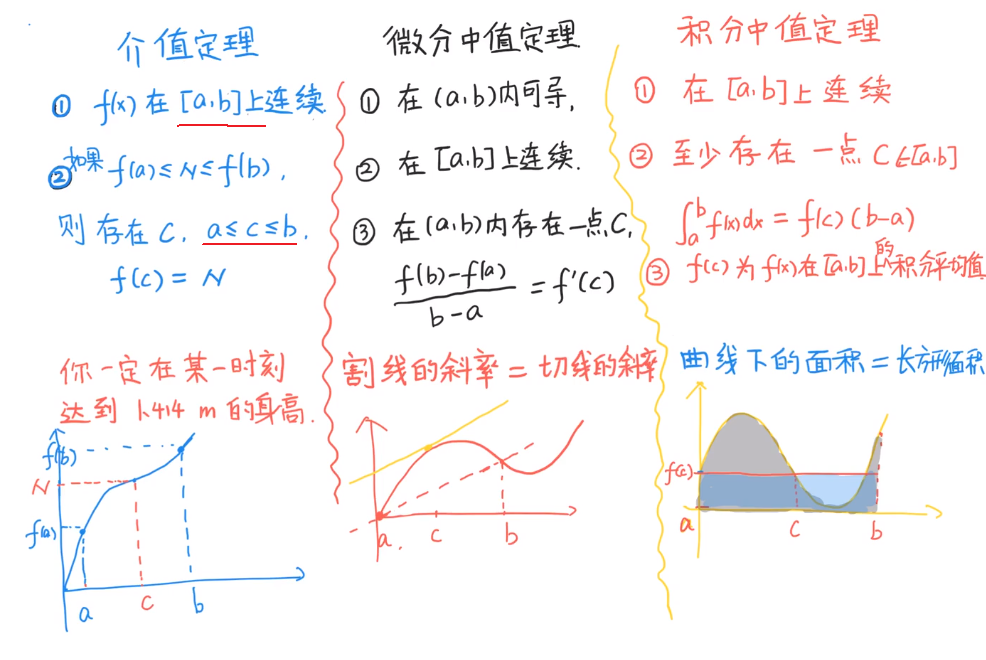 介值定理
① f(x) 在 [a,b]上连续
② 如果 f(a)≤N≤f(b),
则存在 C, a≤c≤b,
f(c) = N
你一定在某一时刻
达到 1.414 m 的身高.
f(b)
N
f(a)
a
c
b
微分中值定理
① 在 (a,b)内可导,
② 在 [a,b]上连续.
③ 在(a,b)内存在一点C,
\frac{f(b)-f(a)}{b-a} = f'(c)
割线的斜率 = 切线的斜率
a.
c
b
积分中值定理
① 在 [a,b]上连续
② 至少存在一点 C∈[a,b]
∫_a^b f(x)dx = f(c)(b-a)
③ f(c) 为 f(x)在[a,b]上的积分平均值
曲线下的面积 = 长方形面积
f(c)
a
c
b